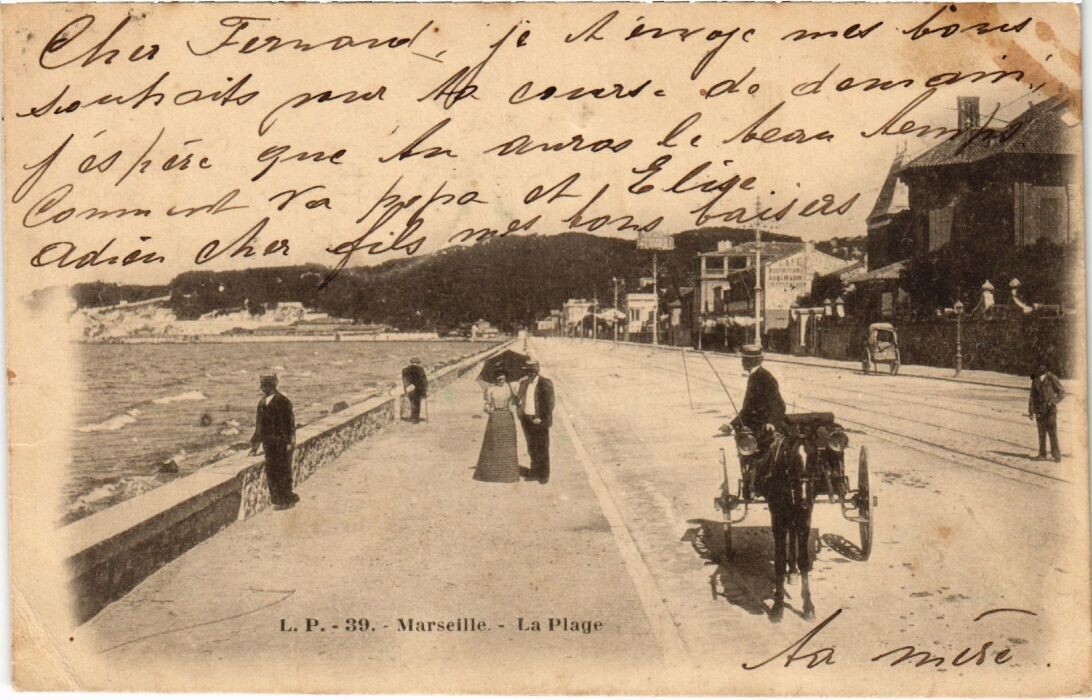 Cher Fernand, je t'envoie mes bons
souhaits pour ta course de demain,
j'éspère que tu auras le beau temps
Comment va papa et Elise
Adieu cher fils mes bons baisers
CAFÉ
RESTAURANT
L. P. - 39. - Marseille. - La Plage
ta mère.